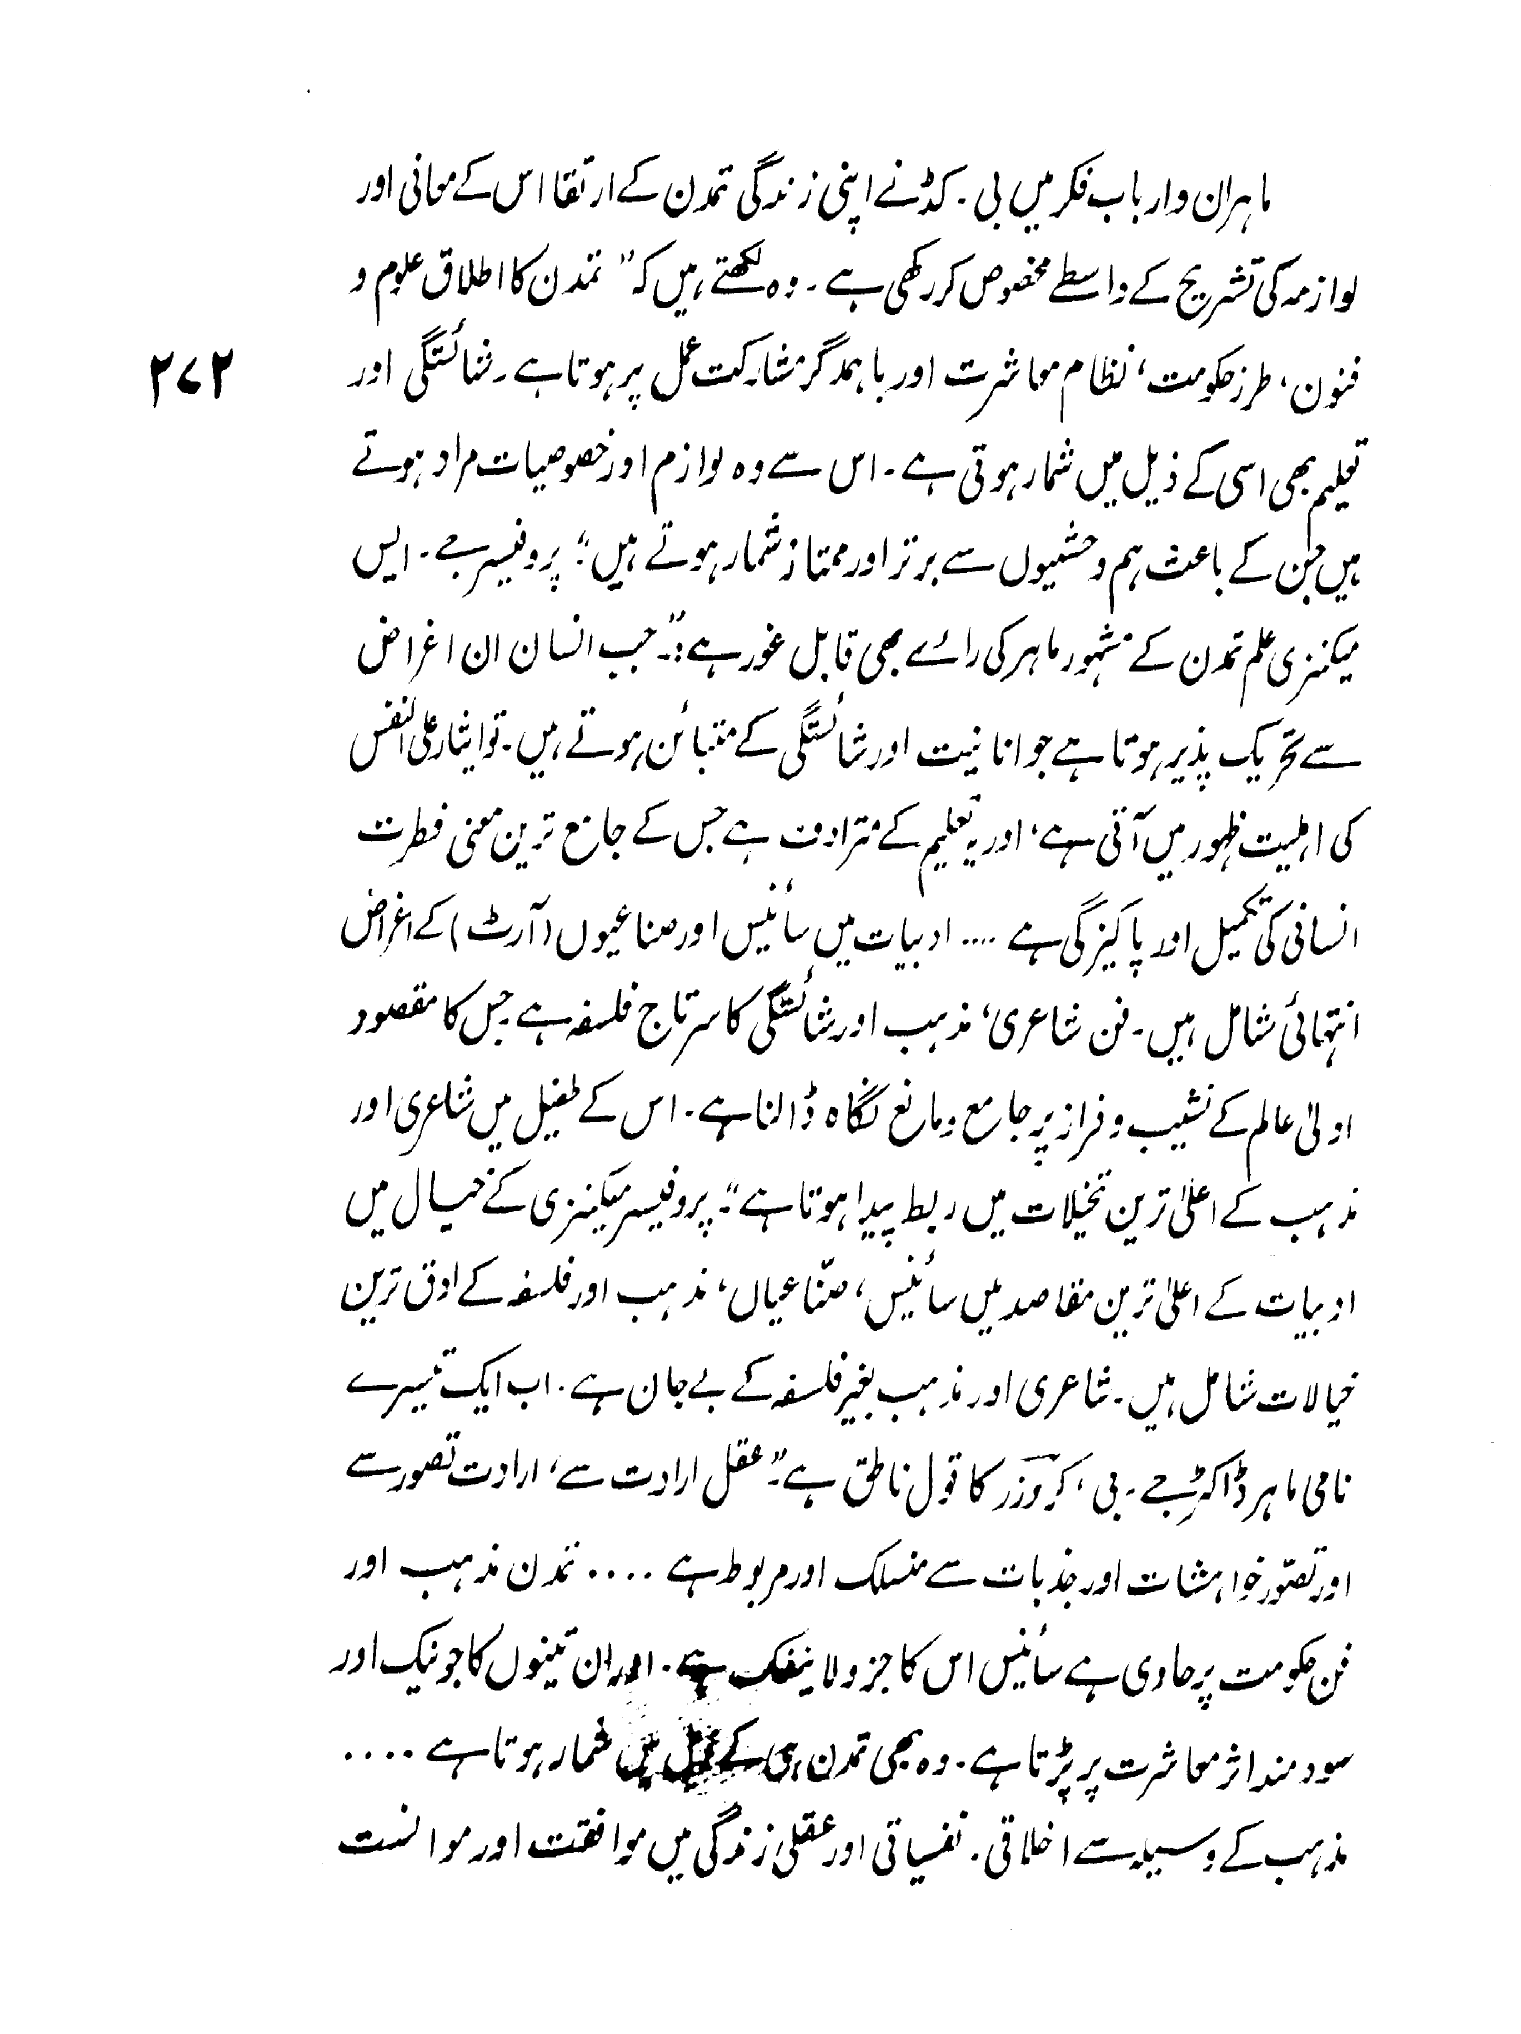 ماہران و ارباب فکر میں بی۔ کڈ نے اپنی زندگی تمدن کے ارتقا اس کے معانی اور
لوازمہ کی تشریح کے واسطے مخصوص کر رکھی ہے۔ وہ لکھتے ہیں کہ "تمدن کا اطلاق علوم و
فنون، طرز حکومت، نظام معاشرت اور باہمدگر مشارکت عمل پر ہوتا ہے۔ شائستگی اور
۲۷۲
تعلیم بھی اسی کے ذیل میں شمار ہوتی ہے۔ اس سے وہ لوازم اور خصوصیات مراد ہوتے
ہیں جن کے باعث ہم وحشیوں سے برتر اور ممتاز شمار ہوتے ہیں"؛ پروفیسر جے۔ ایس
میکنزی علم تمدن کے مشہور ماہر کی رائے بھی قابل غور ہے:"۔ جب انسان ان اغراض
سے تحریک پذیر ہوتا ہے جو انانیت اور شائستگی کے متبائن ہوتے ہیں۔ تو ایثار علی النفس
کی اہمیت ظہور میں آتی ہے، اور یہ تعلیم کے مترادف ہے جس کے جامع ترین معنی فطرت
انسانی کی تکمیل اور پاکیزگی ہے .... ادبیات میں سائنس اور صناعیوں (آرٹ) کے اغراض
انتہائی شامل ہیں۔ فن شاعری، مذہب اور شائستگی کا سرتاج فلسفہ ہے جس کا مقصود
اولیٰ عالم کے نشیب و فراز پر جامع و مانع نگاہ ڈالنا ہے۔ اس کے طفیل میں شاعری اور
مذہب کے اعلیٰ ترین تخیلات میں ربط پیدا ہوتا ہے"۔ پروفیسر میکنزی کے خیال میں
ادبیات کے اعلیٰ ترین مقاصد میں سائنس، صنّاعیاں، مذہب اور فلسفہ کے ادق ترین
خیالات شامل ہیں۔ شاعری اور مذہب بغیر فلسفہ کے بے جان ہے۔ اب ایک تیسرے
نامی ماہر ڈاکٹر جے۔ بی، کروزر کا قول ناطق ہے۔" عقل ارادت سے، ارادت تصور سے
اور تصوّر خواہشات اور جذبات سے منسلک اور مربوط ہے .... تمدن مذہب اور
فن حکومت پر حاوی ہے سائنس اس کا جزو لاینفک ہے۔ اور ان تینوں کا جو نیک اور
سود مند اثر معاشرت پر پڑتا ہے۔ وہ بھی تمدن ہی کے ذیل میں شمار ہوتا ہے ....
مذہب کے وسیلہ سے اخلاقی۔ نفسیاتی اور عقلی زندگی میں موافقت اور موانست